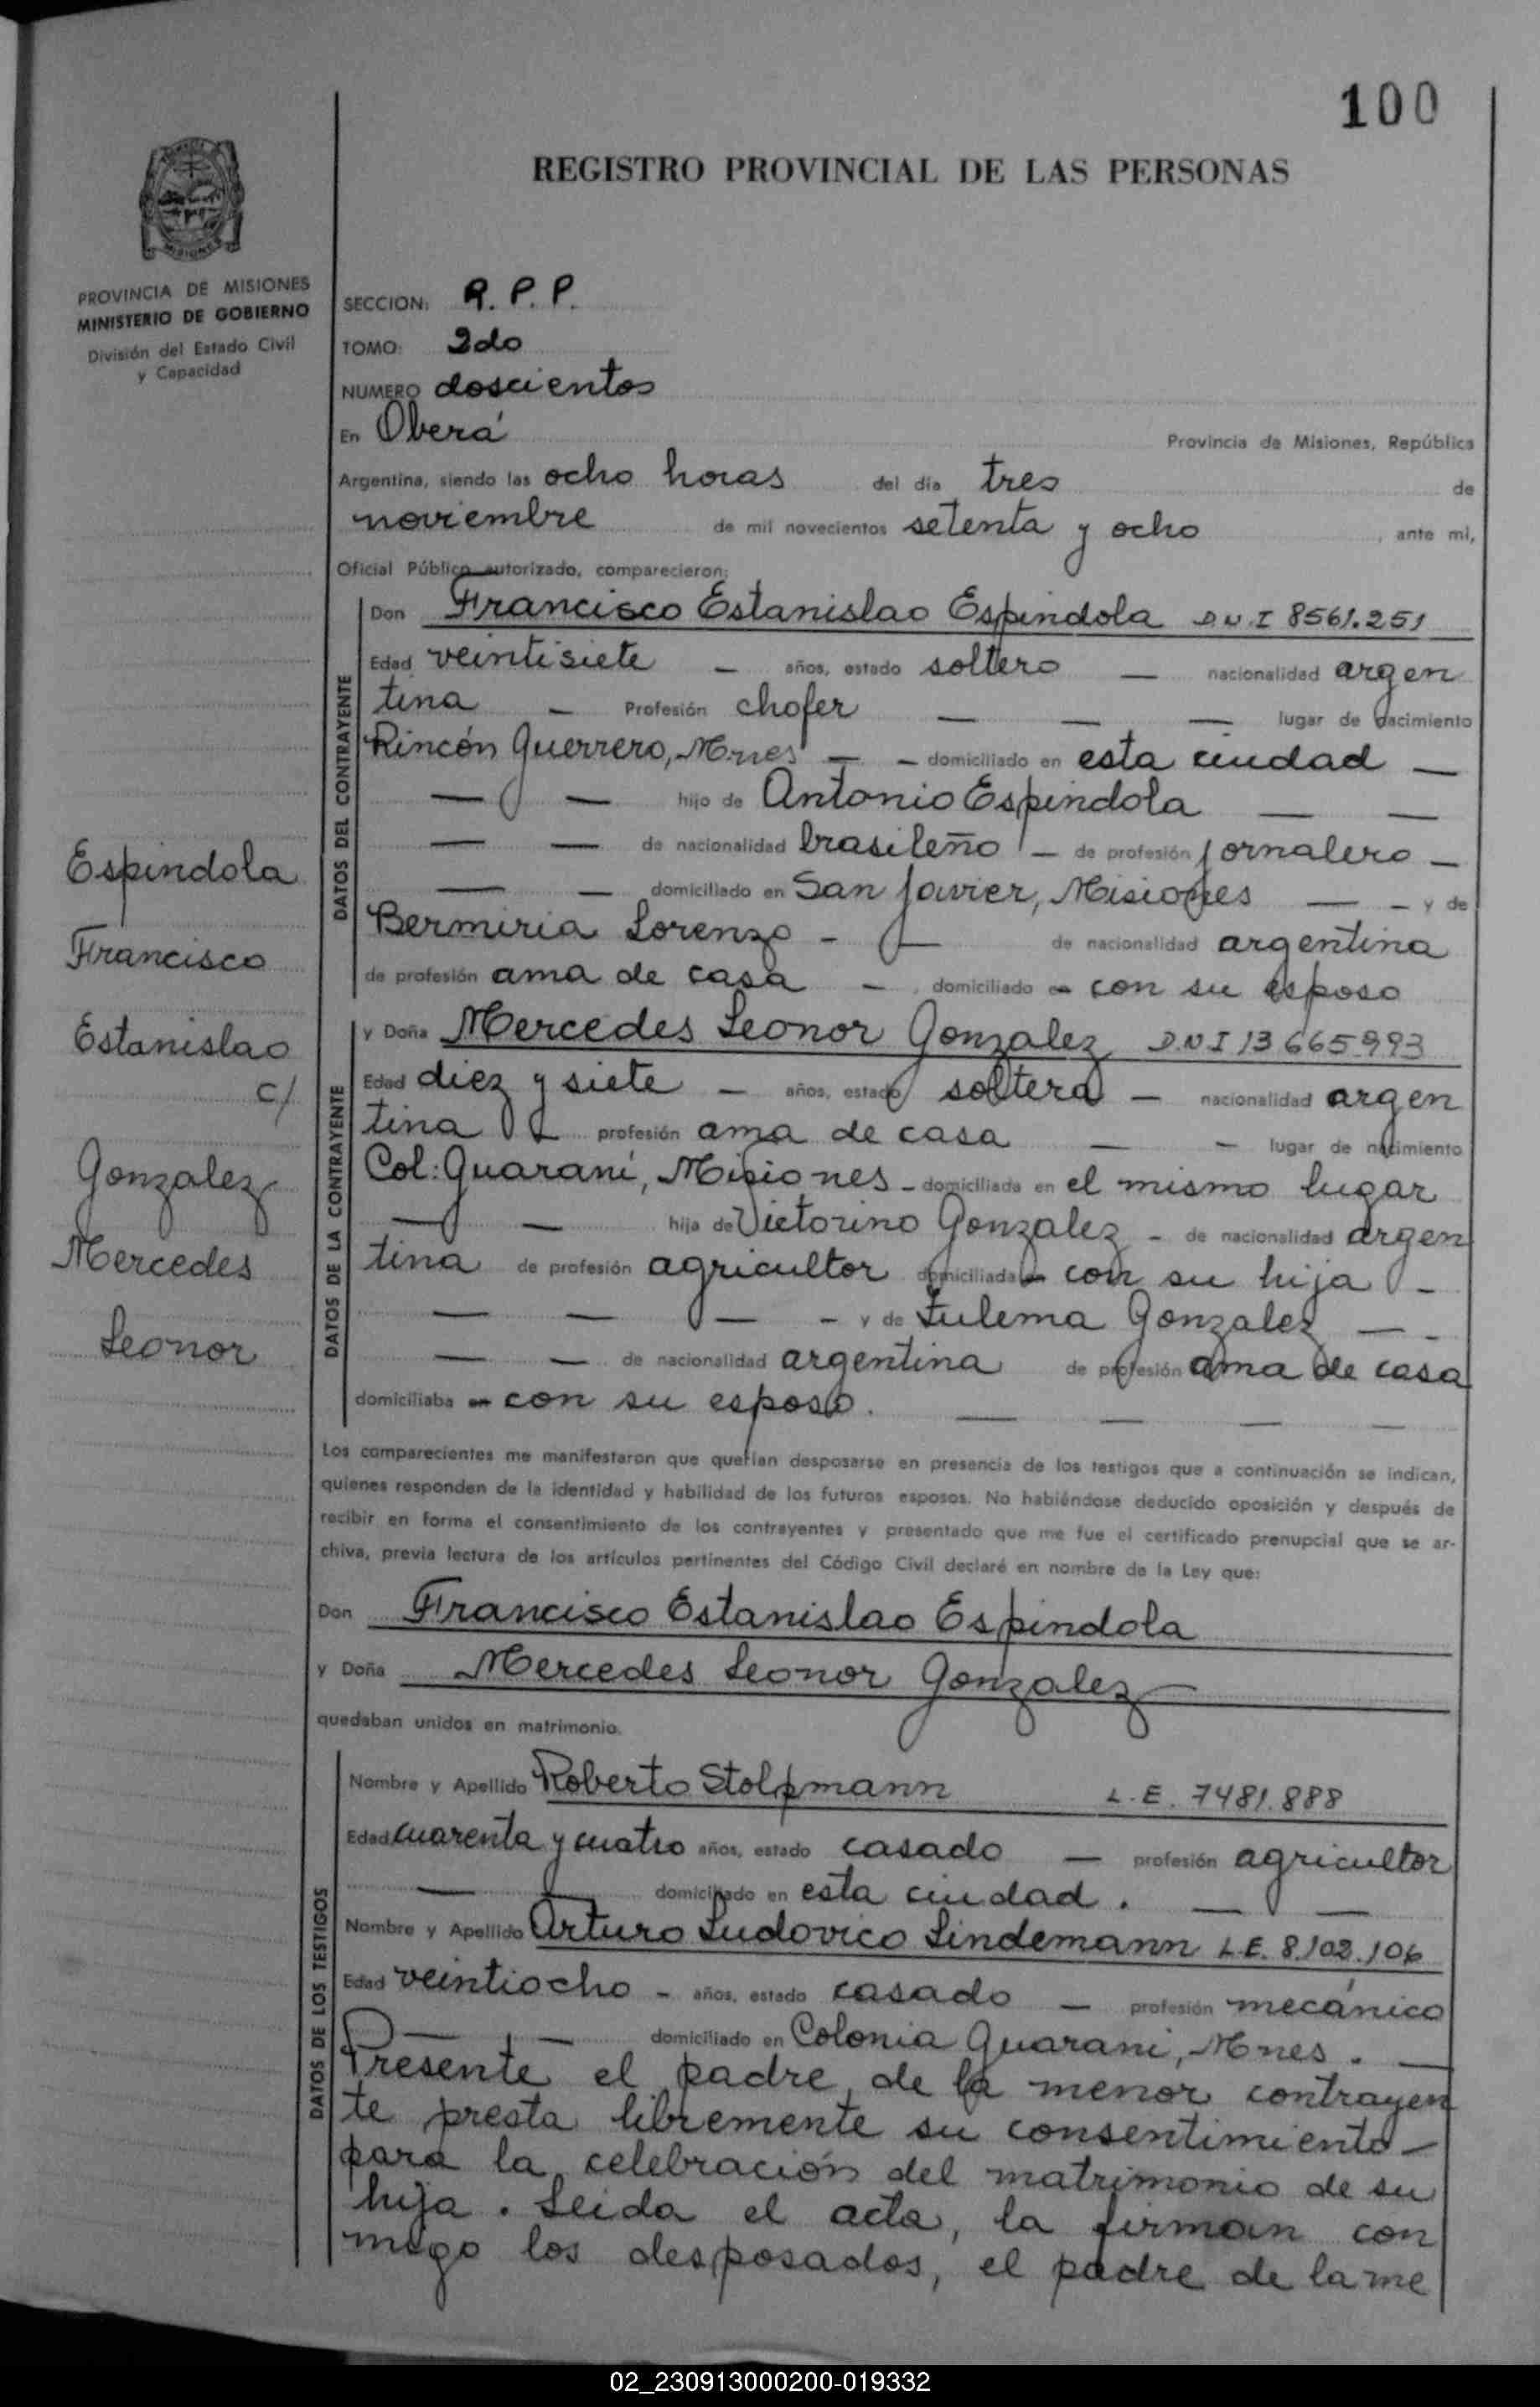 100
REGISTRO PROVINCIAL DE LAS PERSONAS
MISIONES
PROVINCIA DE MISIONES
MINISTERIO DE GOBIERNO
División del Estado Civil
y Capacidad
SECCION: R. P. P.
TOMO: 2do
NUMERO doscientos
En Oberá Provincia de Misiones, República
Argentina, siendo las ocho horas del día tres de
noviembre de mil novecientos setenta y ocho, ante mi,
Oficial Público autorizado, comparecieron:
DATOS DEL CONTRAYENTE
Don Francisco Estanislao Espindola D.N.I 8561.251
Edad veintisiete — años, estado soltero — nacionalidad argen
tina — Profesión chofer — — — lugar de nacimiento
Rincón Guerrero, Mnes — — domiciliado en esta ciudad —
— — hijo de Antonio Espindola — —
— — de nacionalidad brasileño — de profesión jornalero —
— — domiciliado en San Javier, Misiones — — y de
Bermiria Lorenzo - — de nacionalidad argentina
de profesión ama de casa — domiciliado en con su esposo
DATOS DE LA CONTRAYENTE
y Doña Mercedes Leonor Gonzalez D.N.I 13 665.993
Edad diez y siete — años, estado soltera — nacionalidad argen
tina — profesión ama de casa — — lugar de nacimiento
Col: Guaraní, Misiones - domiciliada en el mismo lugar
— — hija de Victorino Gonzalez - de nacionalidad argen
tina de profesión agricultor domiciliada en con su hija -
— — — - y de Zulema Gonzalez — -
— — de nacionalidad argentina de profesión ama de casa
domiciliaba en con su esposo. — — — —
Espindola
Francisco
Estanislao
c/
Gonzalez
Mercedes
Leonor
Los comparecientes me manifestaron que querían desposarse en presencia de los testigos que a continuación se indican,
quienes responden de la identidad y habilidad de los futuros esposos. No habiéndose deducido oposición y después de
recibir en forma el consentimiento de los contrayentes y presentado que me fue el certificado prenupcial que se ar-
chiva, previa lectura de los artículos pertinentes del Código Civil declaré en nombre de la Ley que:
Don Francisco Estanislao Espindola
y Doña Mercedes Leonor Gonzalez
quedaban unidos en matrimonio.
DATOS DE LOS TESTIGOS
Nombre y Apellido Roberto Stolpmann L.E. 7481.888
Edad cuarenta y cuatro años, estado casado — profesión agricultor
— — domiciliado en esta ciudad. — —
Nombre y Apellido Arturo Ludovico Lindemann L.E. 8.102.106
Edad veintiocho - años, estado casado — profesión mecánico
— — domiciliado en Colonia Guarani, Mnes. —
Presente el padre de la menor contrayen
te presta libremente su consentimiento —
para la celebración del matrimonio de su
hija. Leida el acta, la firman con
migo los desposados, el padre de la me
02_230913000200-019332